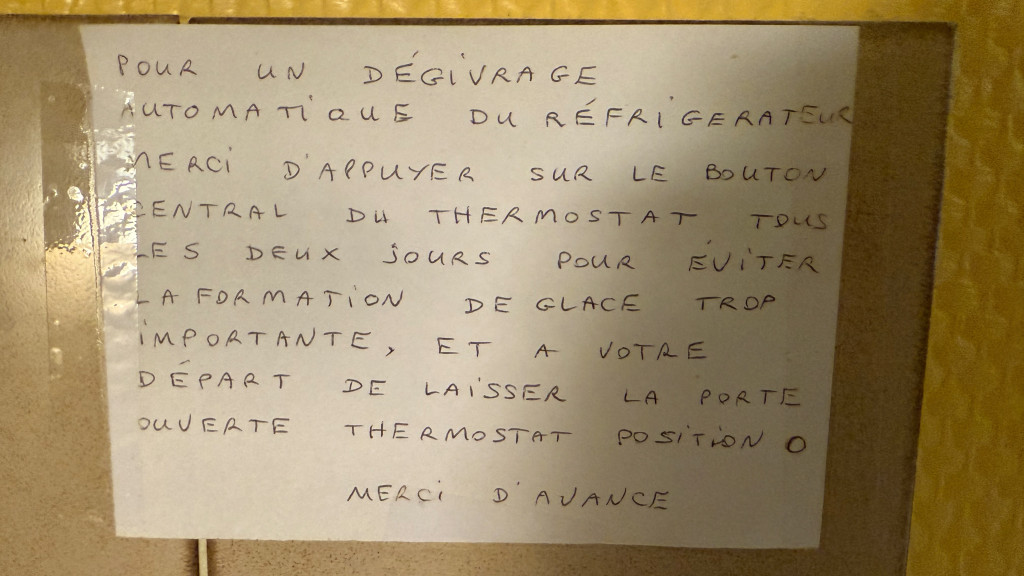 POUR UN DÉGIVRAGE
AUTOMATIQUE DU RÉFRIGERATEUR
MERCI D'APPUYER SUR LE BOUTON
CENTRAL DU THERMOSTAT TOUS
LES DEUX JOURS POUR ÉVITER
LA FORMATION DE GLACE TROP
IMPORTANTE, ET A VOTRE
DÉPART DE LAISSER LA PORTE
OUVERTE THERMOSTAT POSITION O
MERCI D'AVANCE